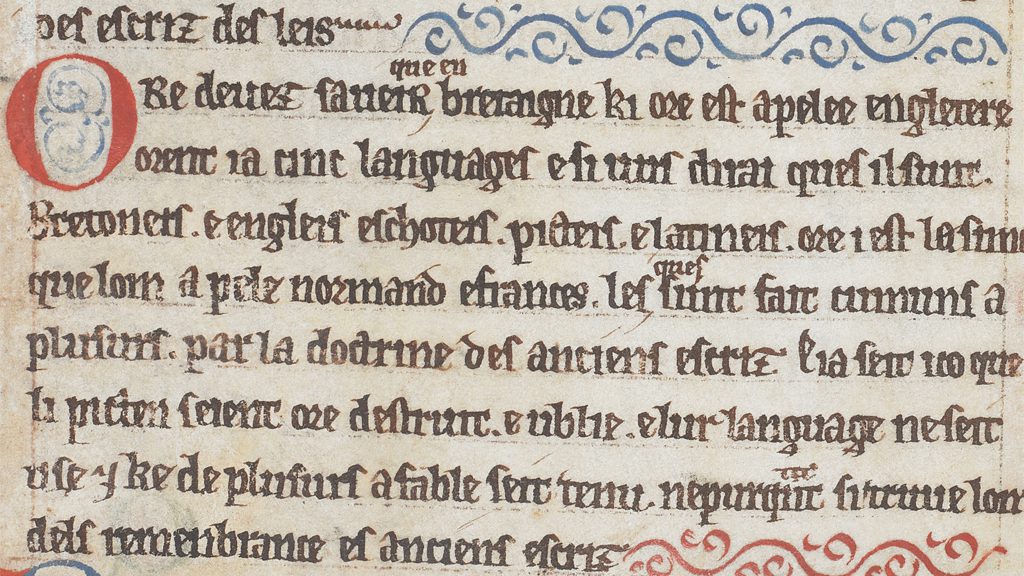 des escriz des leis
que en
ORe deuez saueir bretaigne ki ore est apelee engletere
orent ia cinc languages e si uus dirai ques il sunt.
Bretoneis. e engleis eschoteis. picteis. e latineis. ore i est la sime
ques
que lom apele normand e frances. les sunt fait cumuns a
plusurs. par la doctrine des anciens escriz E ia seit co que
li picten seient ore destruit. e ublie. e lur language ne seit
use ⁊ ke de plusurs a fable seit tenu. si truue lom
dels remenbrance es anciens escriz